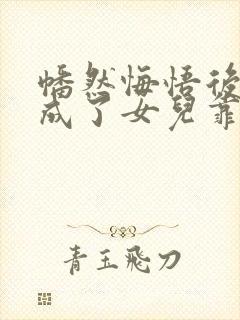 幡然悔悟後
成了女兒靠
青玉飛刀